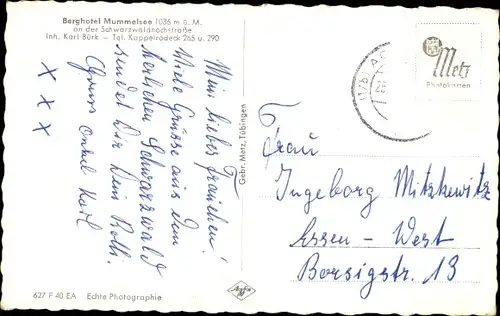 Berghotel Mummelsee 1036 m ü. M.
an der Schwarzwaldhochstraße
Inh. Karl Bürk – Tel. Kappelrodeck 265 u. 290
Mein liebes Frauchen!
Viele Grüsse aus dem
herlichen Schwarzwald
sendet Dir Dein
Gruss Onkel Karl
X X X
627 F 40 EA Echte Photographie
Gebr. Metz, Tübingen
Agfa
Metz
Photokarten
Frau
Ingeborg Mitzkewitz
Essen - West
Borsigstr. 13